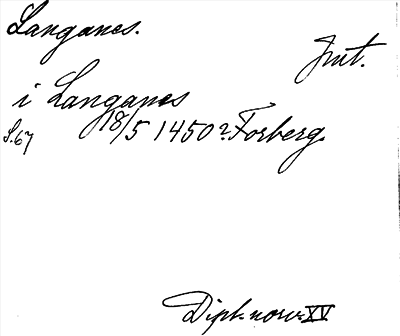 Langanes.
Jmt.
i Langanes
S.67 18/5 1450 ? Forberg.
Dipl. norv. XV